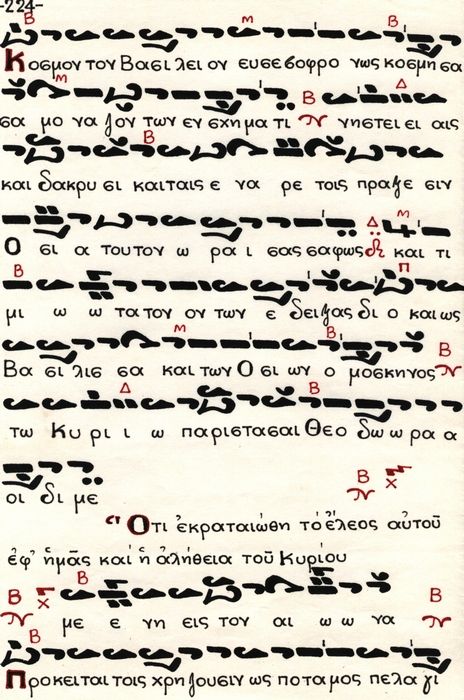 -224-
Κοσμον τον Βασι λει ον ευσεβοφρο νως κοσμη σα
σα μο να ζον των εν σχη μα τι νηστει ει αις
και δακρυ σι και ταις ε να ρε τοις πραξε σιν
Ο σι α τουτον ω ραι σας σαφως και τι
μι ω ω τα τον ον των ε δειξας δι ο και ως
Βα σι λισ σα και των Ο σι ων ο μοσκηνος
τω Κυ ρι ι ω παριστασαι Θεο δω ω ρα α
οι δι με
Ὅτι ἐκραταιώθη τὸ ἔλεος αὐτοῦ
ἐφ' ἡμᾶς καὶ ἡ ἀλήθεια τοῦ Κυρίου
με ε νη εις τον αι ω ω να
Προκειται τοις χρηζουσιν ως ποταμος πελα γι